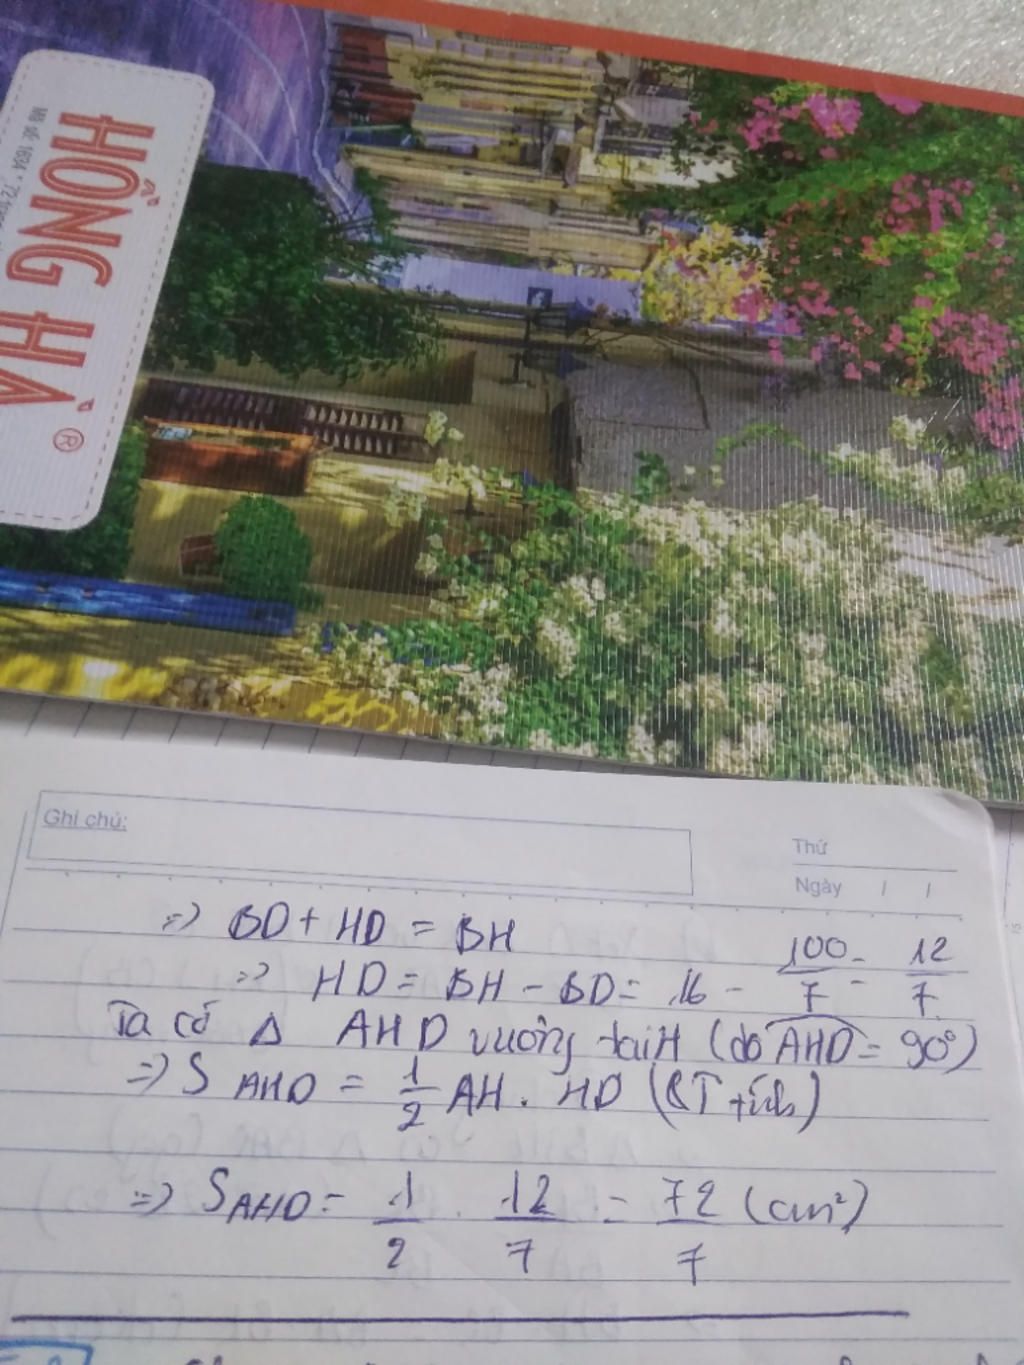 HỒNG HÀ ®
Mã số: 1634
Ghi chú:
Thứ
Ngày / /
=> BD + HD = BH
=> HD = BH - BD = 16 - 100/7 = 12/7
Ta có Δ AHD vuông tại H (do AHD = 90°)
=> S AHD = 1/2 AH . HD (CT tính)
=> S AHD = 1/2 12/7 = 72/7 (cm²)